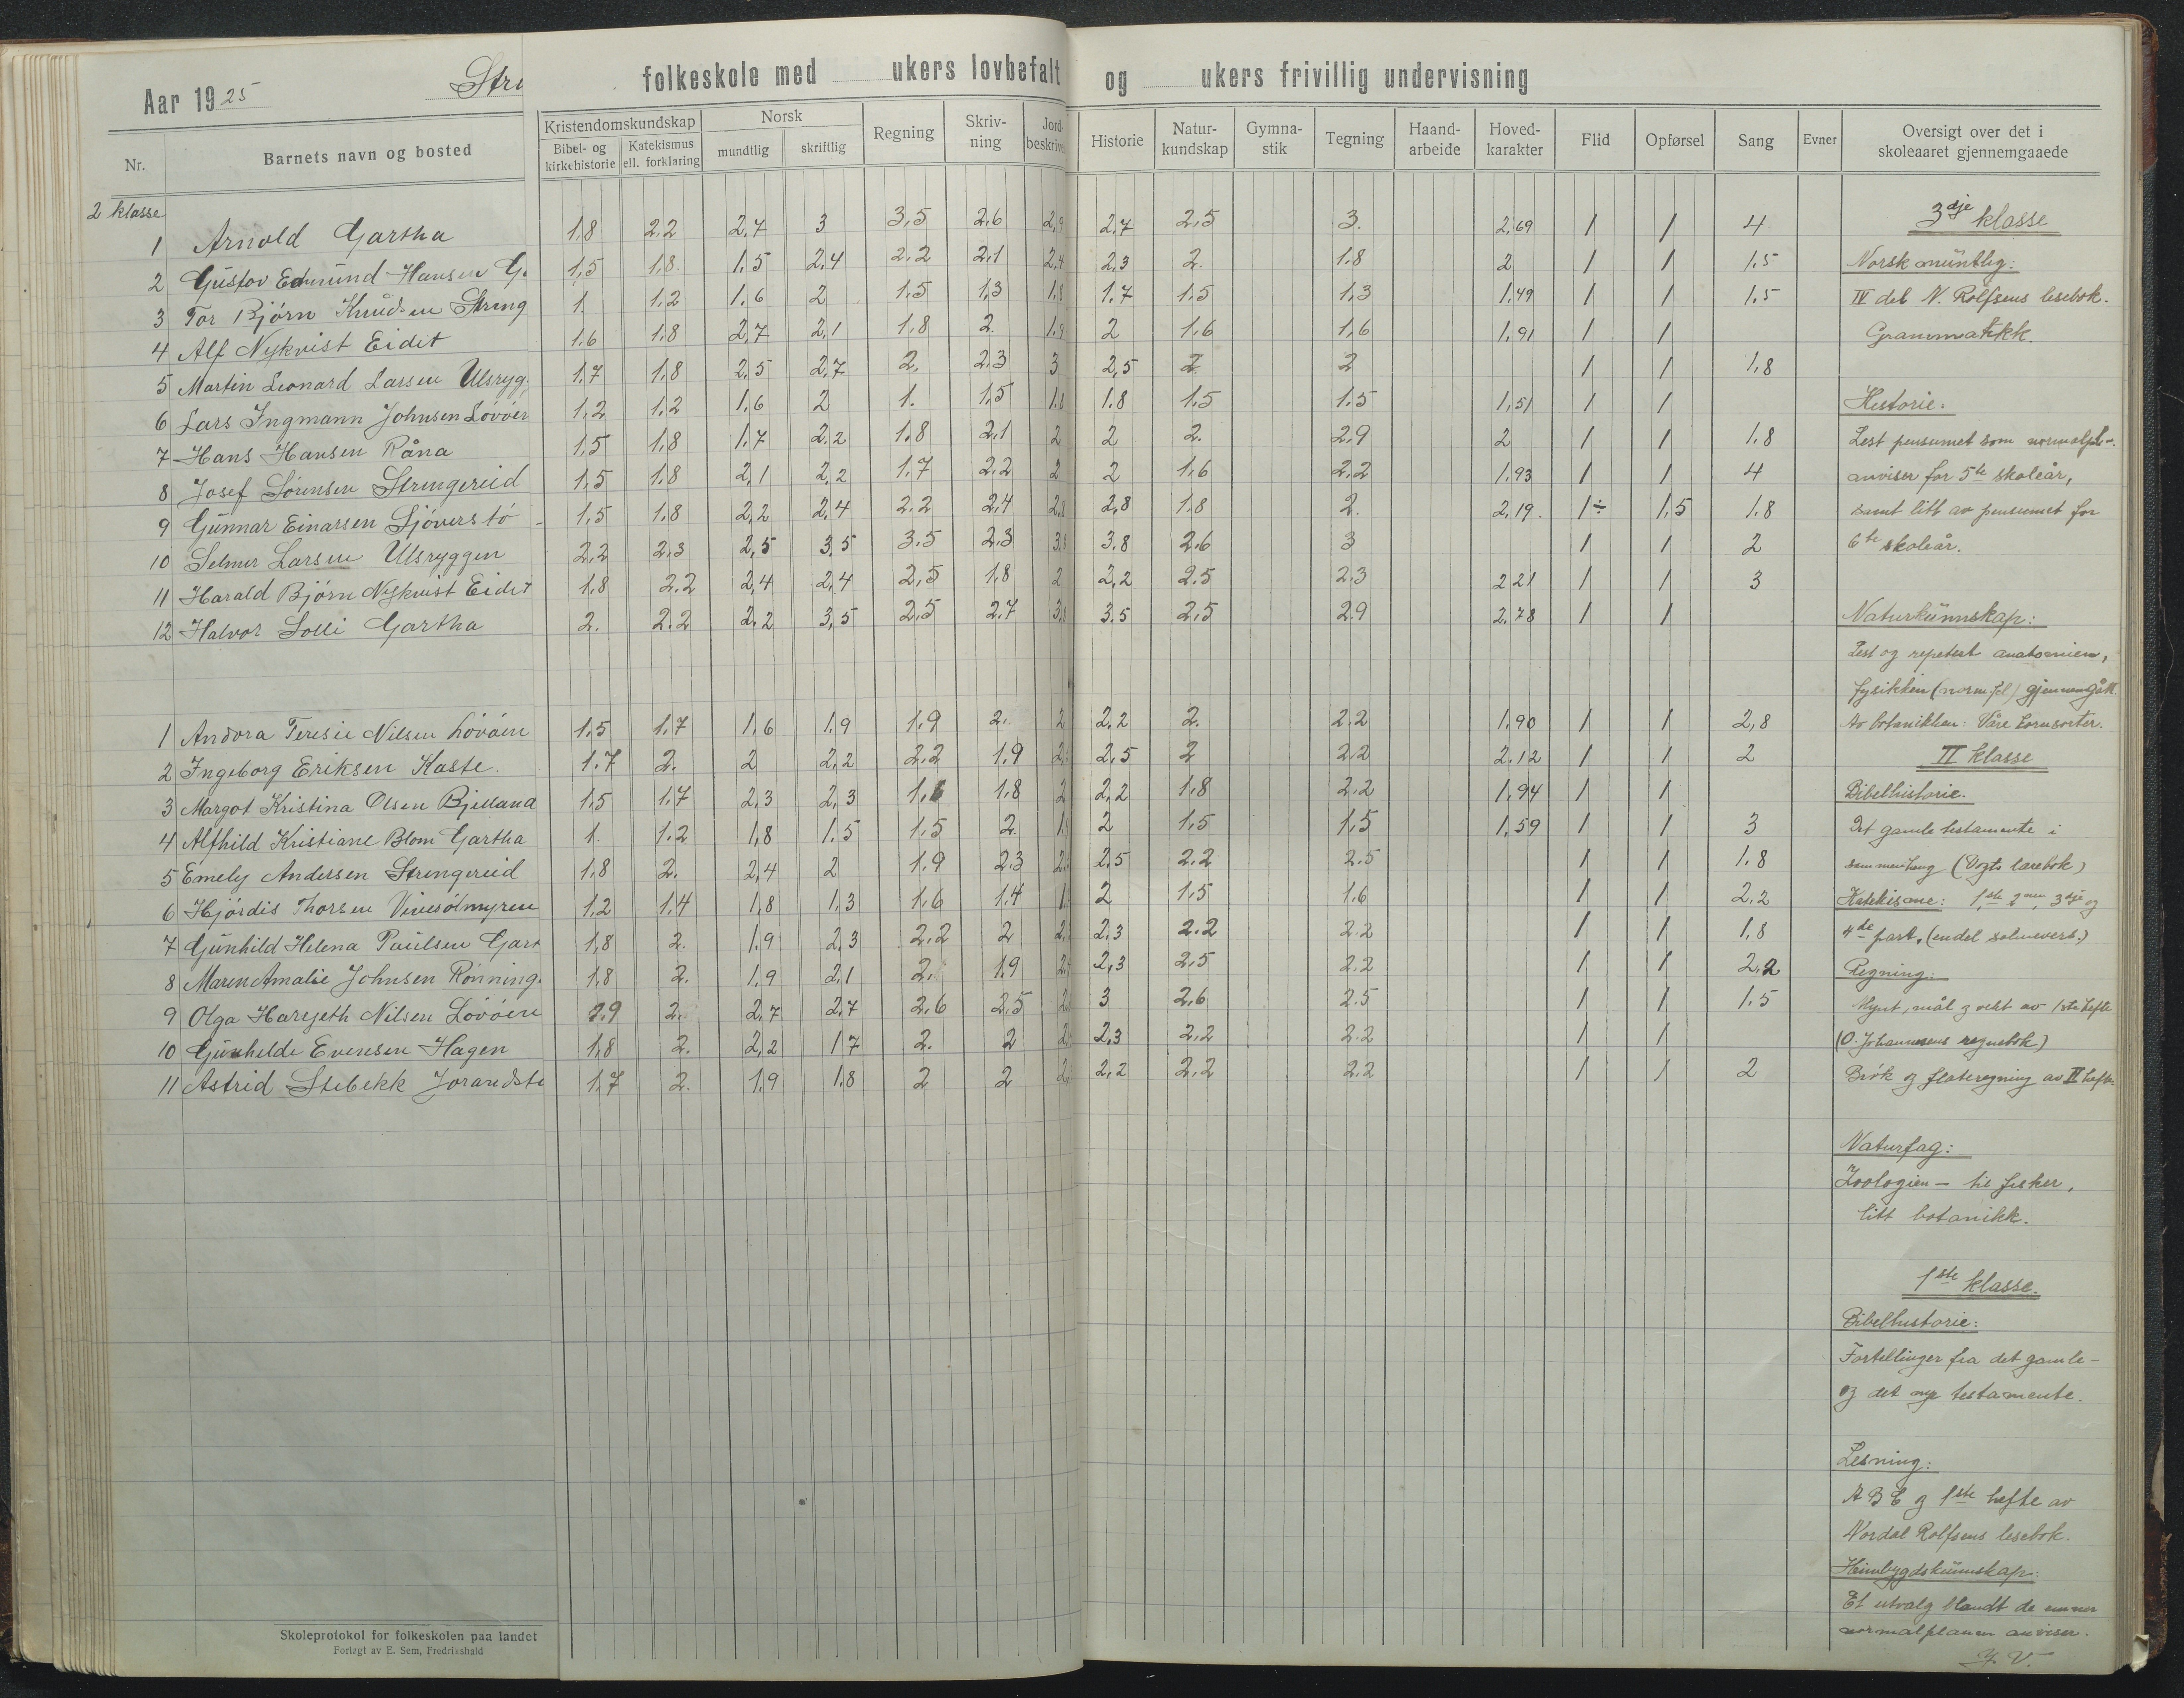 Aar 1925
folkeskole med ukers lovbefalt og ukers frivillig undervisning
Nr. Barnets navn og bosted Kristendomskundskap Bibel- og kirkehistorie Katekismus ell. forklaring Norsk mundtlig skriftlig Regning Skriv-ning Jord-beskrivel Historie Natur-kundskap Gymna-stik Tegning Haand-arbeide Hoved-karakter Flid Opførsel Sang Evner Oversigt over det i skoleaaret gjennemgaaede
2 klasse
1 Arnold Gartha 1,8 2.2 2,7 3 3,5 2,6 2,9 2,7 2,5 3. 2,69 1 1 4
2 Gustov Edmund Hansen G. 1,5 1,8. 1.5 2,4 2,2 2,1 2,4 2,3 2. 1.8 2 1 1 1.5
3 Tor Bjørn Knudsen String 1. 1.2 1.6 2 1.5 1,3 1,8 1.7 1.5 1,3 1,49 1 1 1.5
4 Alf Nykvist Eidet 1.6 1.8 2,7 2,1 1.8 2. 1.9 2 1.6 1,6 1,91 1 1
5 Martin Leonard Larsen Ulsryg. 1.7 1.8 2.5 2,7 2. 2.3 3 2,5 2 2 1 1 1,8
6 Lars Ingmann Johnsen Løvøen 1,2 1,2 1,6 2 1. 1.5 1.8 1.8 1.5 1.5 1,51 1 1
7 Hans Hansen Råna 1,5 1,8 1.7 2.2 1.8 2,1 2 2 2. 2,9 2 1 1 1.8
8 Josef Sørensen Strengereid 1.5 1.8 2,1 2,2 1.7 2.2 2 2 1,6 2,2 1,93 1 1 4
9 Gunnar Einarsen Sjøverstø 1,5 1,8 2,2 2,4 2.2 2,4 2,8 2,8 1.8 2. 2,19. 1÷ 1,5 1.8
10 Selmer Larsen Ulsryggen 2,2 2.3 2,5 3,5 3.5 2.3 3,1 3.8 2.6 3 1 1 2
11 Harald Bjørn Nykvist Eidet 1.8 2.2 2,4 2,4 2,5 1.8 2 2,2 2.5 2.3 2 21 1 1 3
12 Halvor Solli Gartha 2. 2.2 2.2 3,5 2,5 2.7 3,1 3.5 2,5 2.9 2.78 1 1
1 Andora Teresie Nilsen Løvøen 1.5 1.7 1,6 1,9 1,9 2. 2 2.2 2. 2.2 1,90 1 1 2,8
2 Ingeborg Eriksen Kaste. 1.7 2. 2 2,2 2.2 1.9 2, 2,5 2 2.2 2.12 1 1 2
3 Margot Kristina Olsen Bjelland 1,5 1,7 2,3 2,3 1,6 1.8 2 2,2 1.8 2.2 1,94 1 1
4 Alfhild Kristiane Blom Gartha 1. 1.2 1,8 1.5 1.5 2. 1,9 2 1,5 1,5 1,59 1 1 3
5 Emely Andersen Strengereid 1.8 2. 2,4 2 1.9 2.3 2. 2.5 2.2 2.5 1 1 1.8
6 Hjørdis Thorsen Vinesølmyren 1.2 1.4 1,8 1,3 1,6 1.4 1. 2 1.5 1.6 1 1 2,2
7 Gunhild Helena Paulsen Gart 1,8 2. 1.9 2,3 2,2 2 2, 2.3 2.2 2.2 1 1 1,8
8 Maren Amalie Johnsen Rønning. 1.8 2. 1,9 2,1 2. 1.9 2, 2,3 2,5 2.2 1 1 2,2
9 Olga Haregeth Nilsen Løvøen 2.9 2. 2,7 2,7 2,6 2,5 2 3 2,6 2.5 1 1 1.5
10 Gunhelde Evensen Hagen 1,8 2. 2,2 1 7 2. 2 2 2,3 2,2 2.2 1 1
11 Astrid Stebekk Jorandstø 1.7 2. 1.9 1.8 2 2 2. 2,2 2.2 2.2 1 1 2
3dje klasse
Norsk muntlig:
IV del N. Rolfsens lesebok.
Grammatikk.
Historie:
Lest pensumet som normalpl-.
anviser for 5te skoleår,
samt litt av pensumet for
6te skoleår.
Naturkunnskap:
Lest og repetert anatomien,
fysikken (norm.pl) gjennemgått.
Av botanikken: Våre kornsorter.
II klasse
Bibelhistorie.
Det gamle testamente i
sammenheng (Vogts lærebok)
Katekisme: 1ste, 2nen, 3dje og
4de part, (endel salmevers.)
Regning:
Mynt, mål og vekt av 1ste hefte
(O. Johannesens regnebok)
Brøk og flateregning av II hefte.
Naturfag:
Zoologien – til fisker,
litt botanikk.
1ste klasse.
Bibelhistorie:
Fortellinger fra det gamle-
og det nye testamente.
Lesning:
A B C og 1ste hefte av
Nordal Rolfsens lesebok.
Heimbygdskunnskap:
Et utvalg blandt de emner
normalplanen anviser.
Skoleprotokol for folkeskolen paa landet
Forlagt av E. Sem, Fredrikshald